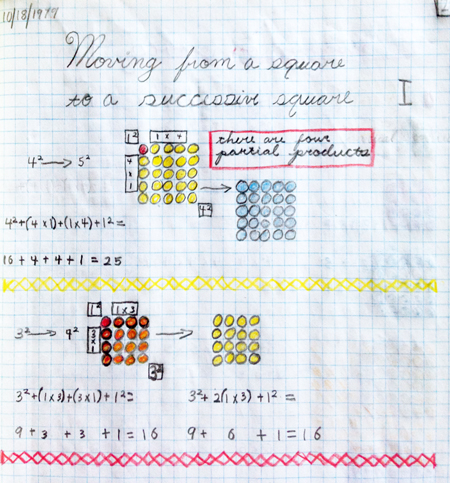 10/18/1977
Moving from a square
to a successive square I
1² 1 x 4
there are four
partial products
4² → 5²
4 x 1
4²
4² + (4 x 1) + (1 x 4) + 1² =
16 + 4 + 4 + 1 = 25
1² 1 x 3
3² → 4²
3 x 1
3²
3² + (1 x 3) + (3 x 1) + 1² =
3² + 2(1 x 3) + 1² =
9 + 3 + 3 + 1 = 16
9 + 6 + 1 = 16